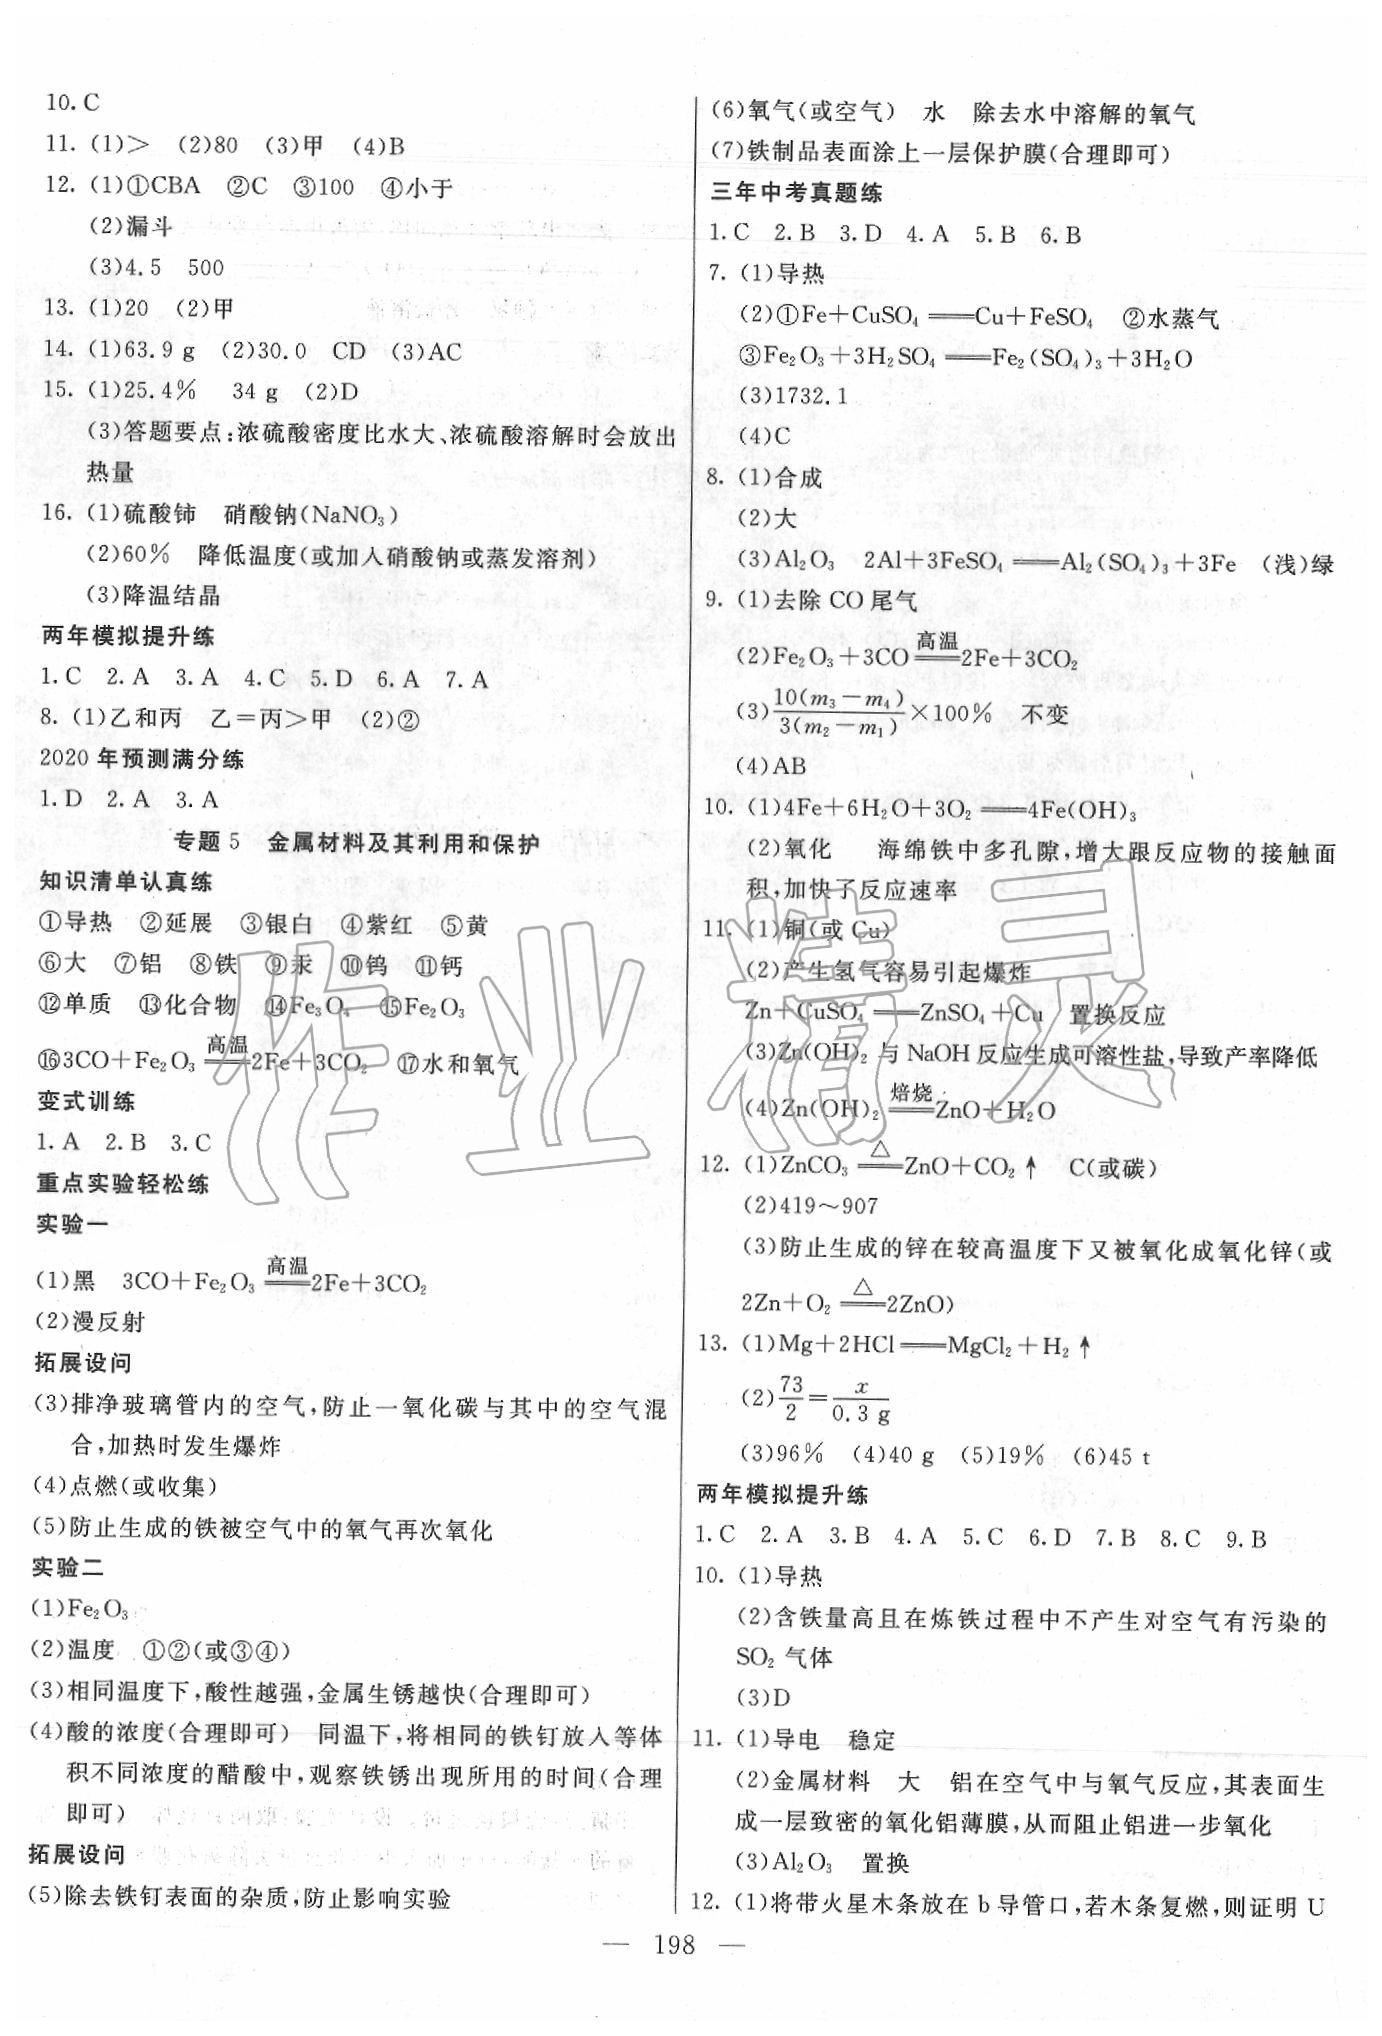 10. C
11. (1)> (2)80 (3)甲 (4)B
12. (1)①CBA ②C ③100 ④小于
(2)漏斗
(3)4.5 500
13. (1)20 (2)甲
14. (1)63.9 g (2)30.0 CD (3)AC
15. (1)25.4% 34 g (2)D
(3)答题要点:浓硫酸密度比水大、浓硫酸溶解时会放出
热量
16. (1)硫酸铈 硝酸钠(NaNO₃)
(2)60% 降低温度(或加入硝酸钠或蒸发溶剂)
(3)降温结晶
两年模拟提升练
1. C 2. A 3. A 4. C 5. D 6. A 7. A
8. (1)乙和丙 乙=丙>甲 (2)②
2020年预测满分练
1. D 2. A 3. A
专题5 金属材料及其利用和保护
知识清单认真练
①导热 ②延展 ③银白 ④紫红 ⑤黄
⑥大 ⑦铝 ⑧铁 ⑨汞 ⑩钨 ⑪钙
⑫单质 ⑬化合物 ⑭Fe₃O₄ ⑮Fe₂O₃
⑯3CO+Fe₂O₃ =高温= 2Fe+3CO₂ ⑰水和氧气
变式训练
1. A 2. B 3. C
重点实验轻松练
实验一
(1)黑 3CO+Fe₂O₃ =高温= 2Fe+3CO₂
(2)漫反射
拓展设问
(3)排净玻璃管内的空气,防止一氧化碳与其中的空气混
合,加热时发生爆炸
(4)点燃(或收集)
(5)防止生成的铁被空气中的氧气再次氧化
实验二
(1)Fe₂O₃
(2)温度 ①②(或③④)
(3)相同温度下,酸性越强,金属生锈越快(合理即可)
(4)酸的浓度(合理即可) 同温下,将相同的铁钉放入等体
积不同浓度的醋酸中,观察铁锈出现所用的时间(合理
即可)
拓展设问
(5)除去铁钉表面的杂质,防止影响实验
(6)氧气(或空气) 水 除去水中溶解的氧气
(7)铁制品表面涂上一层保护膜(合理即可)
三年中考真题练
1. C 2. B 3. D 4. A 5. B 6. B
7. (1)导热
(2)①Fe+CuSO₄══Cu+FeSO₄ ②水蒸气
③Fe₂O₃+3H₂SO₄══Fe₂(SO₄)₃+3H₂O
(3)1732.1
(4)C
8. (1)合成
(2)大
(3)Al₂O₃ 2Al+3FeSO₄══Al₂(SO₄)₃+3Fe (浅)绿
9. (1)去除CO尾气
(2)Fe₂O₃+3CO =高温= 2Fe+3CO₂
(3)10(m₃-m₄)/3(m₂-m₁)×100% 不变
(4)AB
10. (1)4Fe+6H₂O+3O₂══4Fe(OH)₃
(2)氧化 海绵铁中多孔隙,增大跟反应物的接触面
积,加快了反应速率
11. (1)铜(或Cu)
(2)产生氢气容易引起爆炸
Zn+CuSO₄══ZnSO₄+Cu 置换反应
(3)Zn(OH)₂与NaOH反应生成可溶性盐,导致产率降低
(4)Zn(OH)₂ =焙烧= ZnO+H₂O
12. (1)ZnCO₃ =△= ZnO+CO₂↑ C(或碳)
(2)419~907
(3)防止生成的锌在较高温度下又被氧化成氧化锌(或
2Zn+O₂ =△= 2ZnO)
13. (1)Mg+2HCl══MgCl₂+H₂↑
(2)73/2=x/0.3 g
(3)96% (4)40 g (5)19% (6)45 t
两年模拟提升练
1. C 2. A 3. B 4. A 5. C 6. D 7. B 8. C 9. B
10. (1)导热
(2)含铁量高且在炼铁过程中不产生对空气有污染的
SO₂气体
(3)D
11. (1)导电 稳定
(2)金属材料 大 铝在空气中与氧气反应,其表面生
成一层致密的氧化铝薄膜,从而阻止铝进一步氧化
(3)Al₂O₃ 置换
12. (1)将带火星木条放在b导管口,若木条复燃,则证明U
— 198 —
作业精灵